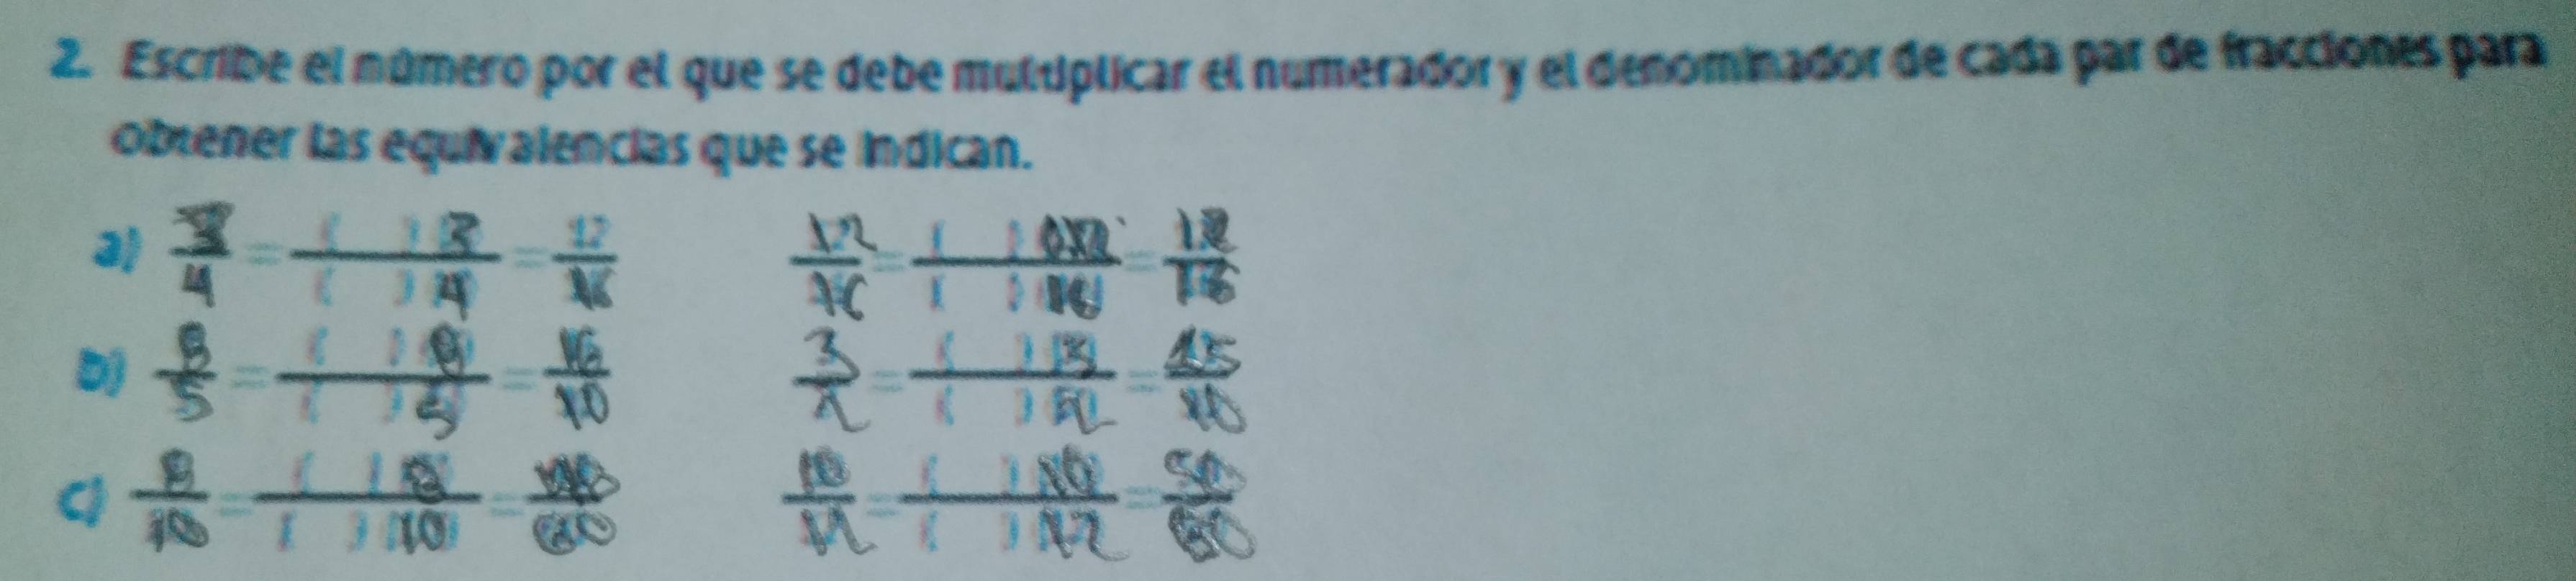 2. Escribe el número por el que se debe multiplicar el numerador y el denominador de cada par de fracciones para
obtener las equivalencias que se indican.
a) 3/4 = ( ) (3)/( ) (4) = 12/16    12/16 = ( ) (12)/( ) (16) = 12/16
b) 8/5 = ( ) (8)/( ) (5) = 16/10    3/2 = ( ) (3)/( ) (2) = 15/10
c) 8/10 = ( ) (8)/( ) (10) = /60    10/12 = ( ) (10)/( ) (12) = 50/60